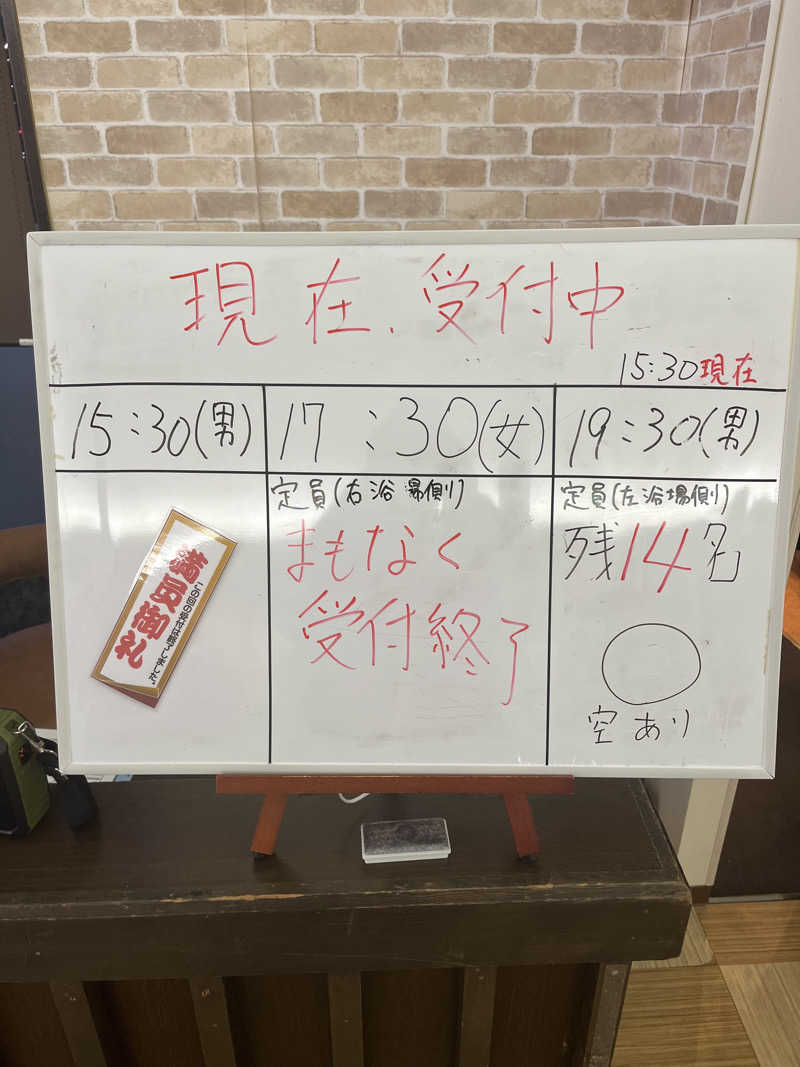 現在、受付中
15:30現在
15:30(男)
17:30(女)
19:30(男)
満員御礼
この回の受付は終了しました。
定員(右浴場側)
まもなく
受付終了
定員(左浴場側)
残14名
空あり